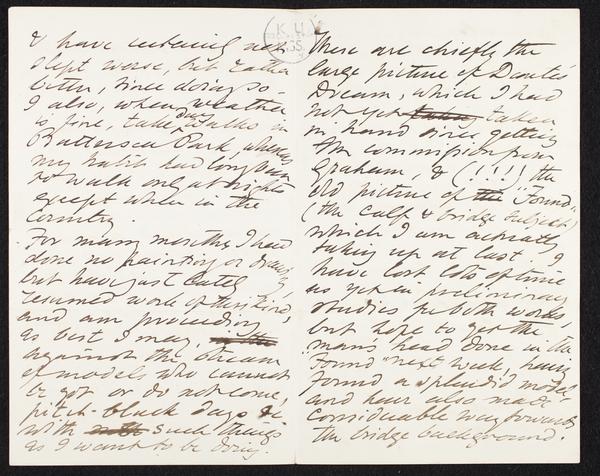 K.U
55.
& have certainly not
slept worse, but rather
better, since doing so.
I also, when weather
is fine, take day walks in
Battersea Park, whereas
my habit had long been
to walk only at nights
except when in the
Country.
For many months I had
done no painting or drawing,
but have just lately
resumed work of this kind,
and am proceeding
as best I may,
against the stream
of models who cannot
be got or do not come,
pitch-black days &
with such things
as I want to be doing.
These are chiefly the
large picture of Dante's
Dream, which I had
not yet taken
in hand since getting
the commission from
Graham, & (!!!!) the
old picture of the "Found"
(the calf & bridge subject)
which I am actually
taking up at last. I
have lost lots of time
as yet in preliminary
studies for both works,
but hope to get the
man's head done in the
"Found" next week, having
found a splendid model
and have also made
considerable way towards
the bridge background.